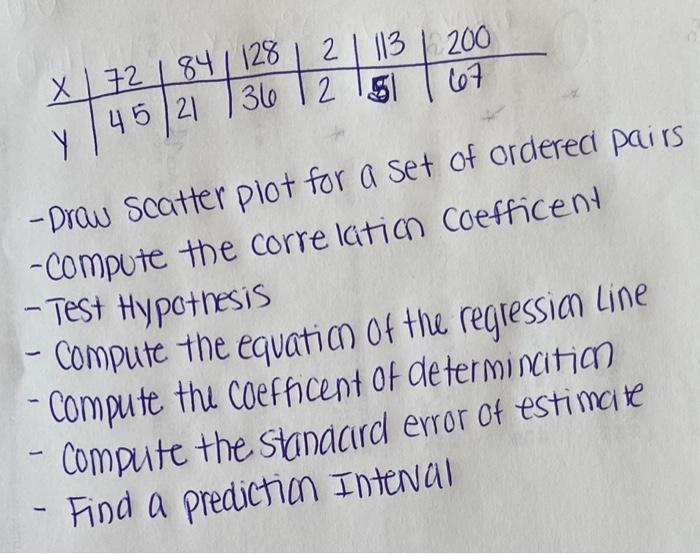 X | 72 | 84 | 128 | 2 | 113 | 200
Y | 45 | 21 | 36 | 2 | 51 | 67
- Draw scatter plot for a set of ordered pairs
- Compute the correlation coefficent
- Test Hypothesis
- Compute the equation of the regression Line
- Compute the coefficent of determination
- Compute the standard error of estimate
- Find a prediction Interval